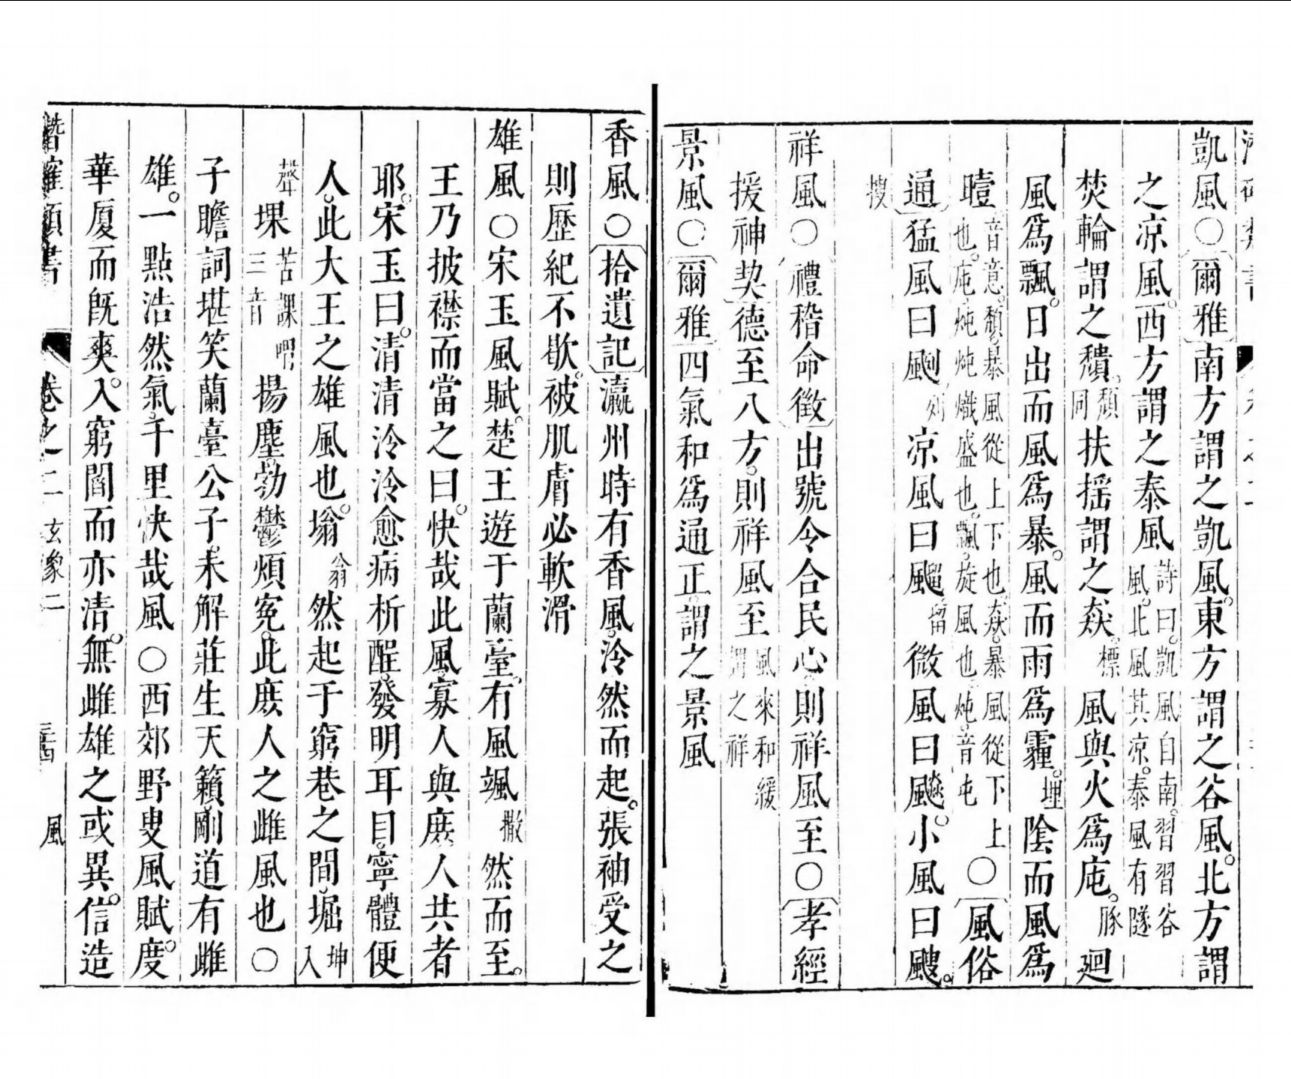 凱風○爾雅南方謂之凱風東方謂之谷風北方謂
之凉風西方謂之泰風詩曰凱風自南習習谷風北風其凉泰風有隧
焚輪謂之穨頽同扶搖謂之猋標風與火爲庉豚廻
風爲飄日出而風爲暴風而雨爲霾埋陰而風爲
曀音意頽暴風從上下也猋暴風從下上也庉炖炖熾盛也飄旋風也炖音屯○風俗
通猛風曰䬆列凉風曰飀留微風曰飈小風曰颼
搜
祥風○禮稽命徵出號令合民心則祥風至○孝經
援神契德至八方則祥風至風來和緩謂之祥
景風○爾雅四氣和爲通正謂之景風
香風○拾遺記瀛州時有香風泠然而起張袖受之
則歷紀不歇被肌膚必軟滑
雄風○宋玉風賦楚王遊于蘭臺有風颯撒然而至
王乃披襟而當之曰快哉此風寡人與庶人共者
耶宋玉曰清清泠泠愈病析酲發明耳目寧體便
人此大王之雄風也塕翁然起于窮巷之間堀坤入
聲堁苦課三音揚塵勃鬱煩寃此庶人之雌風也○
子瞻詞堪笑蘭臺公子未解莊生天籟剛道有雌
雄一點浩然氣千里快哉風○西郊野叟風賦度
華厦而旣爽入窮閻而亦清無雌雄之或異信造
卷之二 玄象二 風